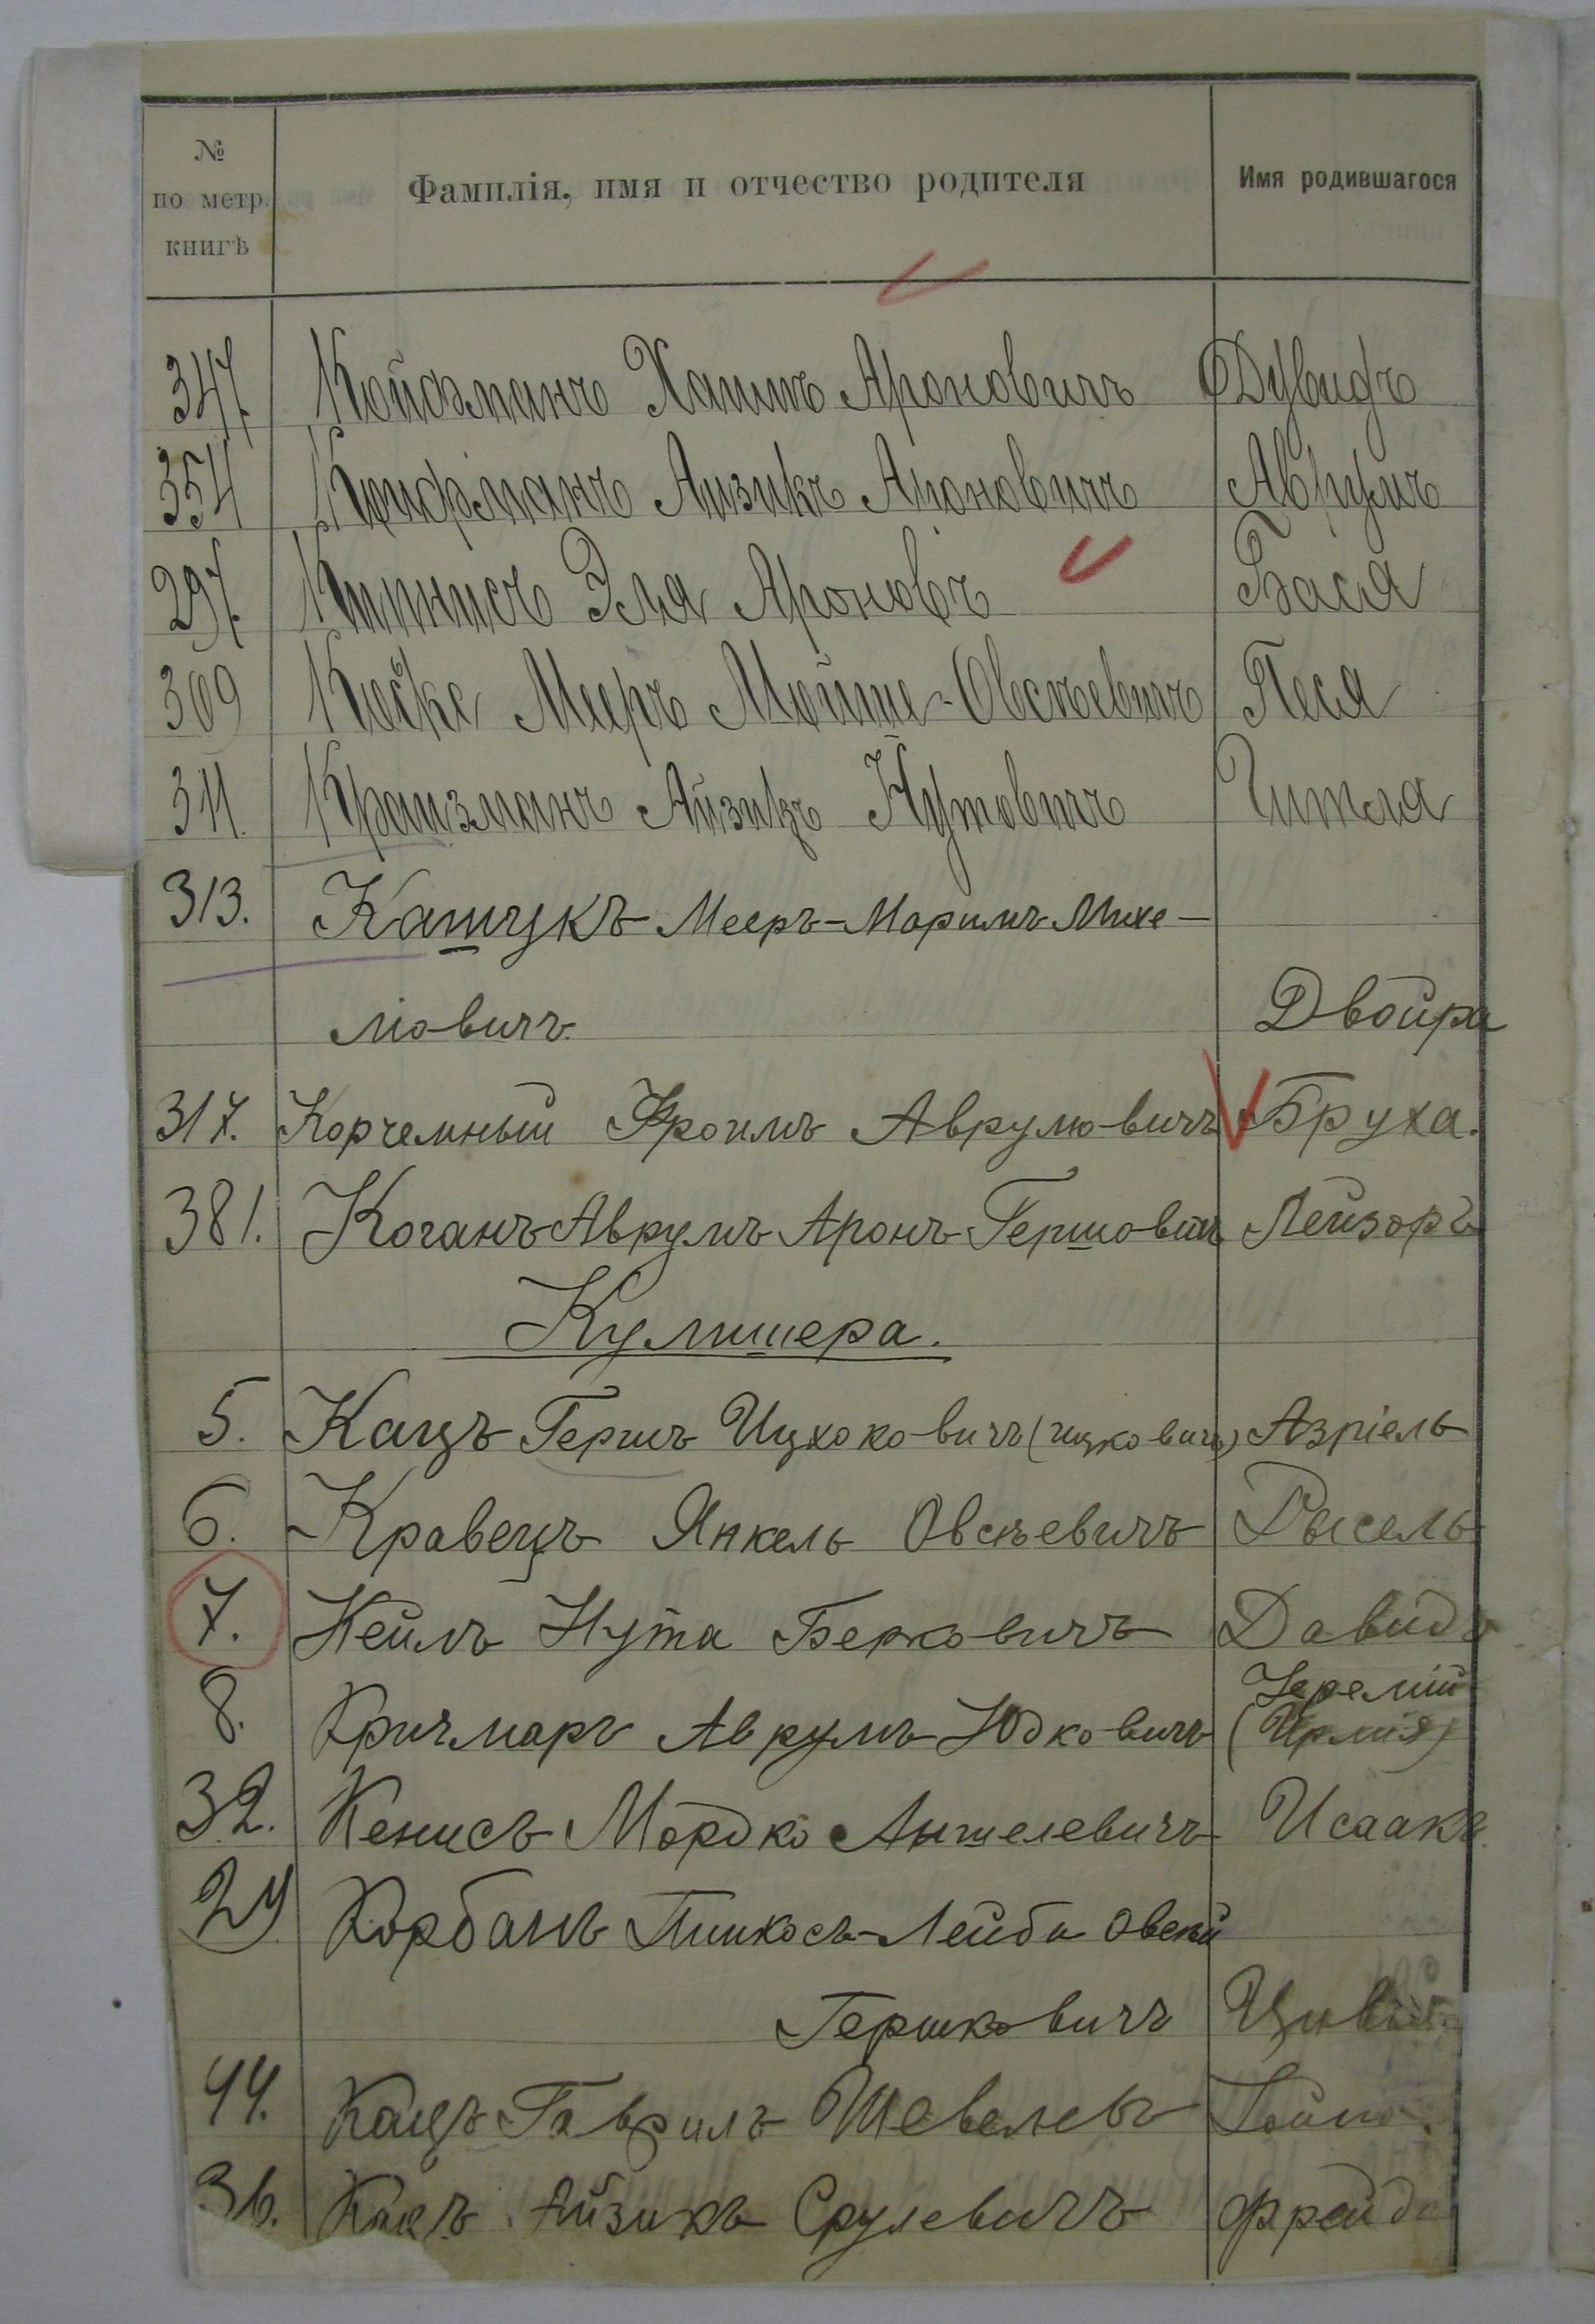 № по метр. книгѣ Фамилія, имя и отчество родителя Имя родившагося
347. Койфманъ Хаимъ Ароновичъ Дувидъ
354 Койфманъ Айзикъ Ароновичъ Аврумъ
297. Кипнисъ Эля Ароновъ Бася
309 Мееръ Мойше-Овсѣевичъ Песя
311. Крайзманъ Айзикъ Нутовичъ Гитля
313. Кашукъ Мееръ-Маримъ Михе-
ловичъ. Двойра
317. Корчемный Фроимъ Аврумовичъ Бруха.
381. Коганъ Аврумъ Аронъ Гершовичъ Лейзоръ
Кулишера.
5. Кацъ Гершъ Ицхоковичъ (ицковичъ) Азріель
6. Кравецъ Янкель Овсѣевичъ Рысель
7. Кейлъ Нута Берковичъ Давидъ
8. Кричмаръ Аврумъ Юдковичъ Іеремій (Ирмія)
32. Кенисъ Мордко Аншелевичъ Исаакъ
29 Корбанъ Пинкосъ-Лейба Овсей
Гершковичъ Цивья
44. Кацъ Гаврилъ Шевелевъ
36. Кацъ Айзикъ Срулевичъ Фрейда